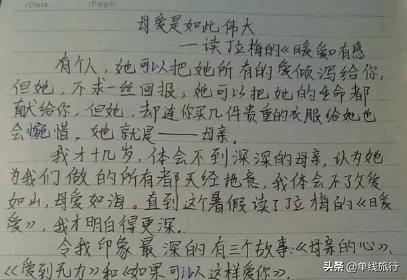 Date: /Page:
母爱是如此伟大
——读丁立梅的《暖爱》有感
有个人，她可以把她所有的爱倾泻给你，
但她，不求一丝回报，她可以把她的生命都
献给你，但她，却连你买几件贵重的衣服给她也
会惋惜，她就是——母亲。
我才十几岁，体会不到深深的母亲，认为她
为我们做的所有都天经地意，我体会不了父爱
如山，母爱如海。直到这个暑假读了丁立梅的《暖
爱》，我才明白得更深。
令我印象最深的有三个故事：《母亲的心》、
《爱到无力》和《如果可以这样爱你》。
头条@单线旅行